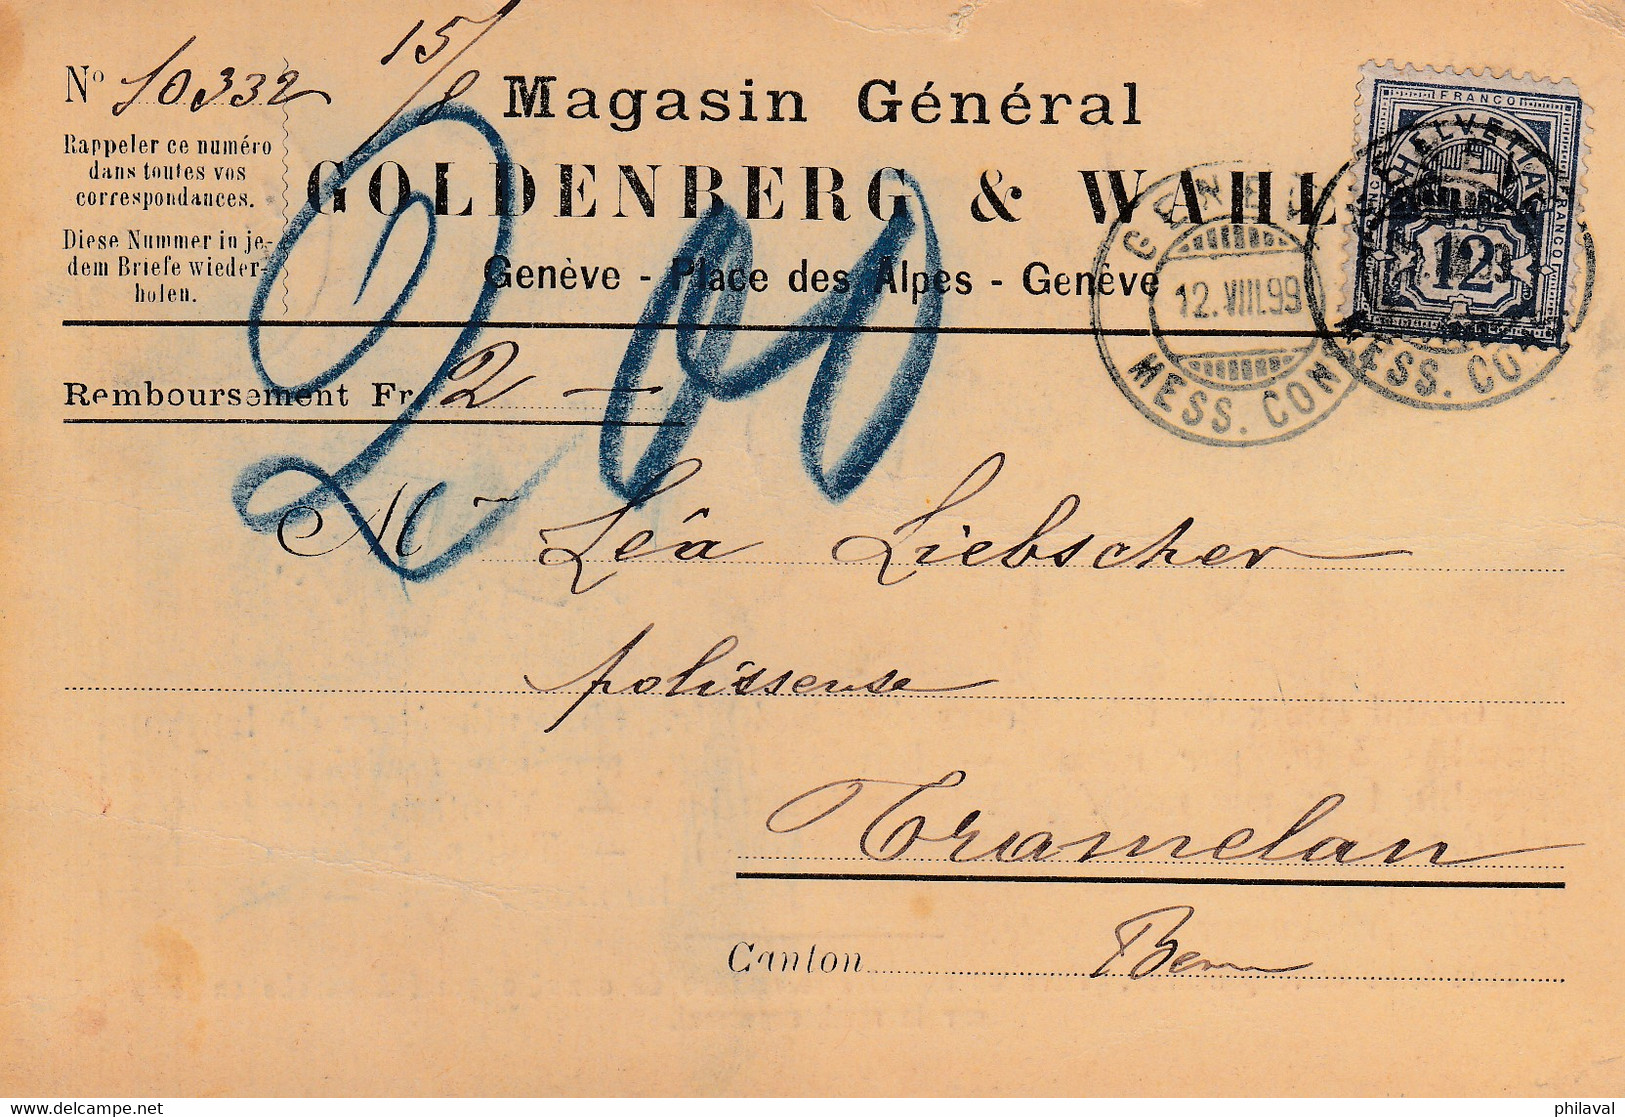 15/8
Nº 10332
Rappeler ce numéro
dans toutes vos
correspondances.
Diese Nummer in je-
dem Briefe wieder-
holen.
Magasin Général
GOLDENBERG & WAHL
Genève - Place des Alpes - Genève
FRANCO
HELVETIA
FRANCO
12
GENÈVE
12.VIII.99
MESS. CONS
MESS. CO
Remboursement Fr. 2 —
200
Mme Léa Liebscher
polisseuse
Tramelan
Canton Berne
delcampe.net
philaval